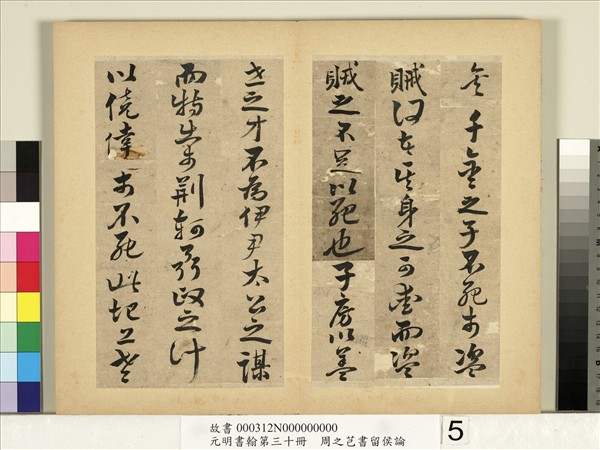 矣千金之子不死於盜
賊何者其身之可愛而盜
賊之不足以死也子房以蓋
世之才不為伊尹太公之謀
而特出於荊軻聶政之計
以僥倖於不死此圯上老
故書 000312N000000000
元明書翰第三十冊 周之芑書留侯論
5